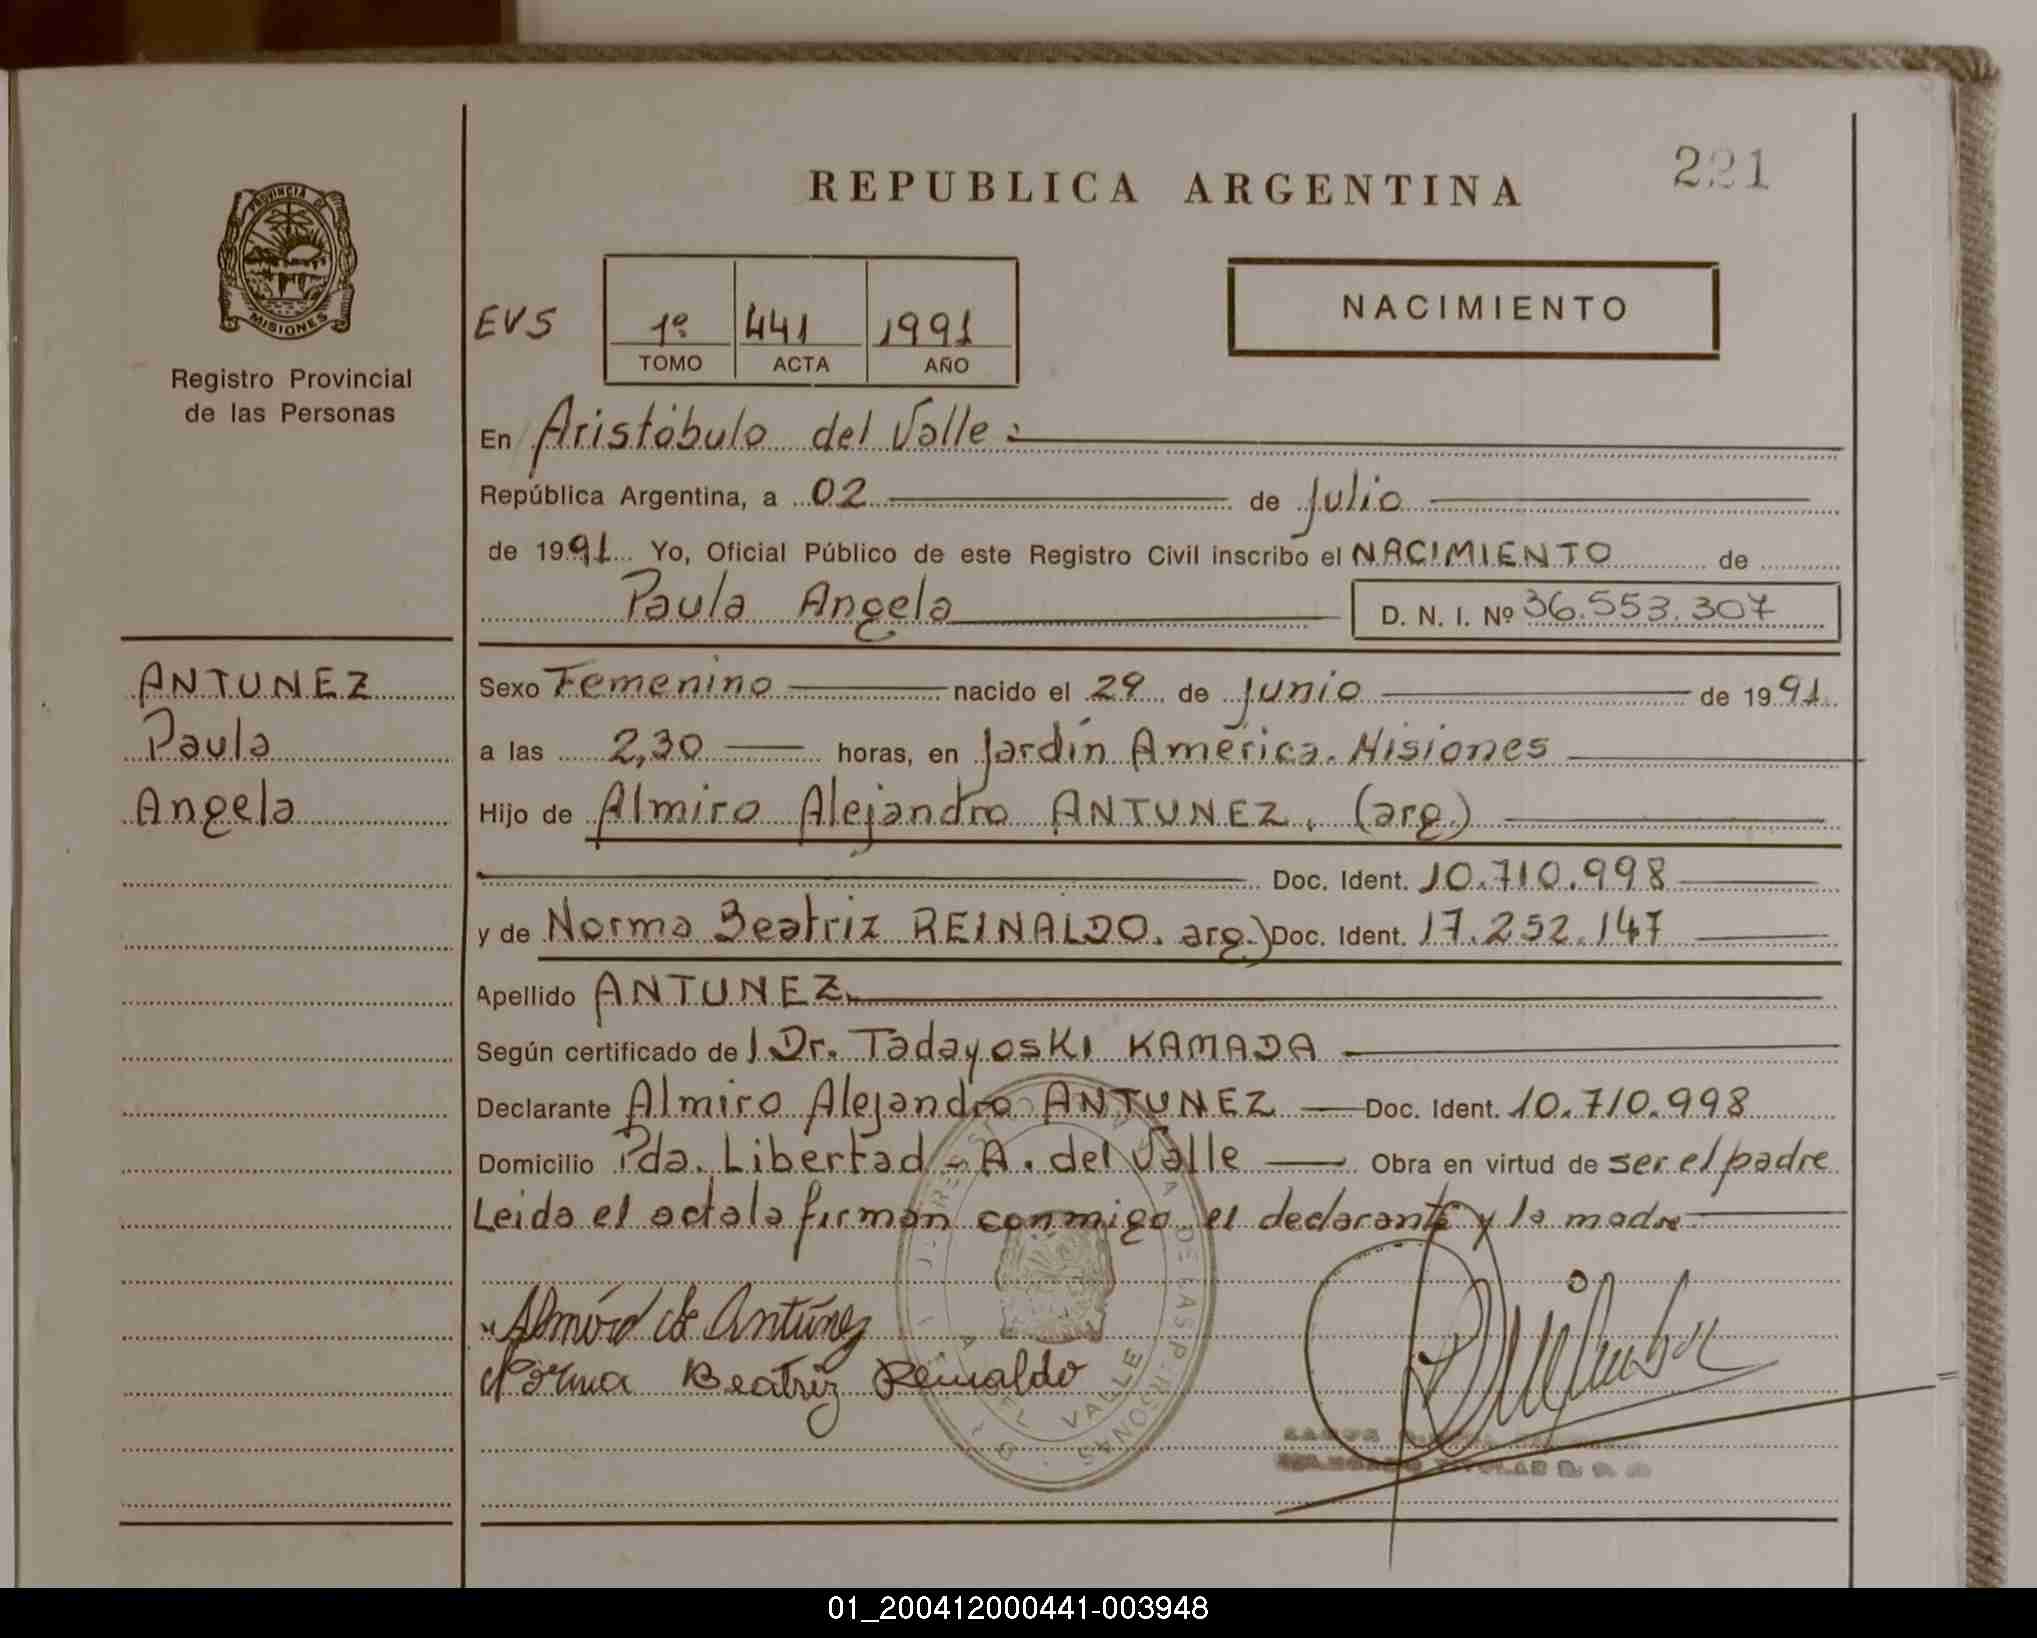 221
REPUBLICA ARGENTINA
PROVINCIA DE
MISIONES
Registro Provincial
de las Personas
EVS
1º 441 1991
TOMO ACTA AÑO
NACIMIENTO
En Aristóbulo del Valle.-
República Argentina, a 02 de Julio
de 1991 Yo, Oficial Público de este Registro Civil inscribo el NACIMIENTO de
Paula Angela D. N. I. Nº 36.553.307
ANTUNEZ
Paula
Angela
Sexo Femenino nacido el 29 de Junio de 1991
a las 2,30 horas, en Jardín América. Misiones
Hijo de Almiro Alejandro ANTUNEZ. (arg.)
Doc. Ident. 10.710.998
y de Norma Beatriz REINALDO. arg.) Doc. Ident. 17.252.147
Apellido ANTUNEZ.
Según certificado del Dr. Tadayoski KAMADA
Declarante Almiro Alejandro ANTUNEZ Doc. Ident. 10.710.998
Domicilio Pda. Libertad - A. del Valle Obra en virtud de ser el padre
Leida el acta la firman conmigo el declarante y la madre
Antúnez
Norma Beatriz Reinaldo
DE LAS PERSONAS
DEL VALLE
01_200412000441-003948